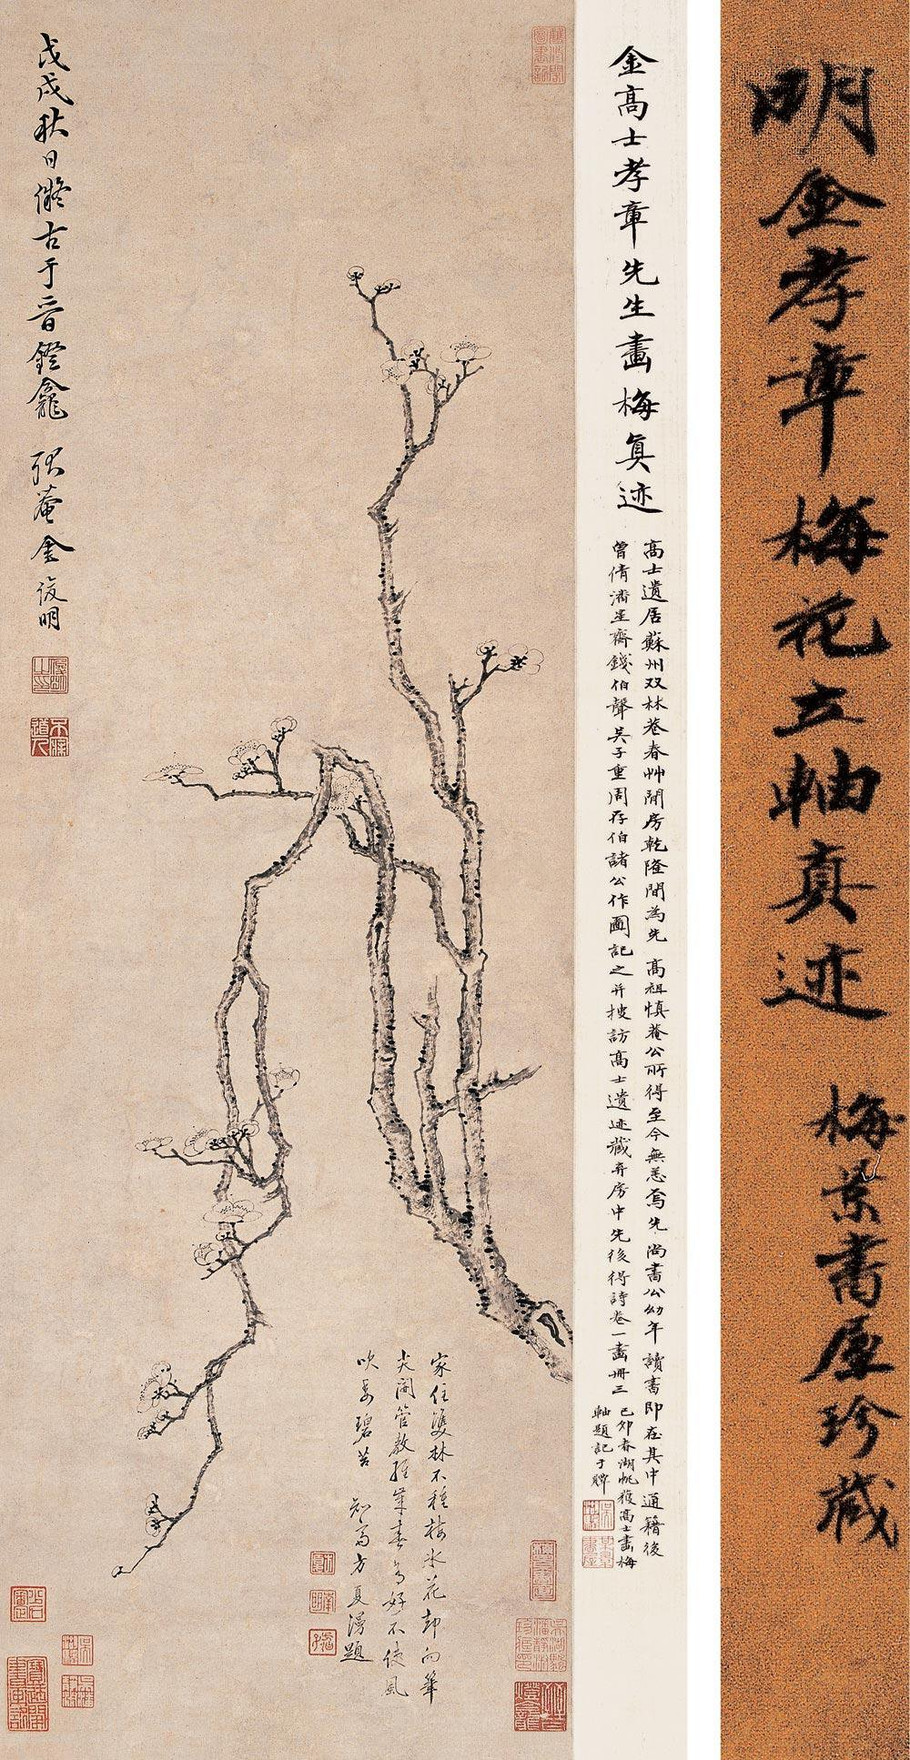 明金孝章梅花立軸真迹
梅景書屋珍藏
金高士孝章先生畫梅真迹
高士遺居蘇州双林巷春艸閒房乾隆間為先高祖慎菴公所得至今無恙焉先尚書公幼年讀書即在其中通籍後
曾倩潘星齋錢伯聲吳子重周存伯諸公作圖記之并搜訪高士遺迹藏弆房中先後得詩卷一畫冊三
己卯春湖帆獲高士畫梅
軸題記于裨
戊戌秋日儗古于晉鐙龕
耿菴金俊明
家住雙林不種梅冰花却向筆
尖開管教經年春色好不使風
吹妥碧苔
智方夏漫題